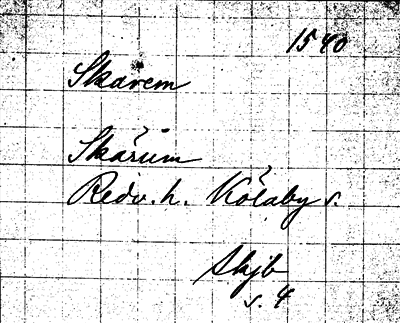 1540
Skarem
Skårum
Redv. h. Kölaby s.
Skjb
s. 4